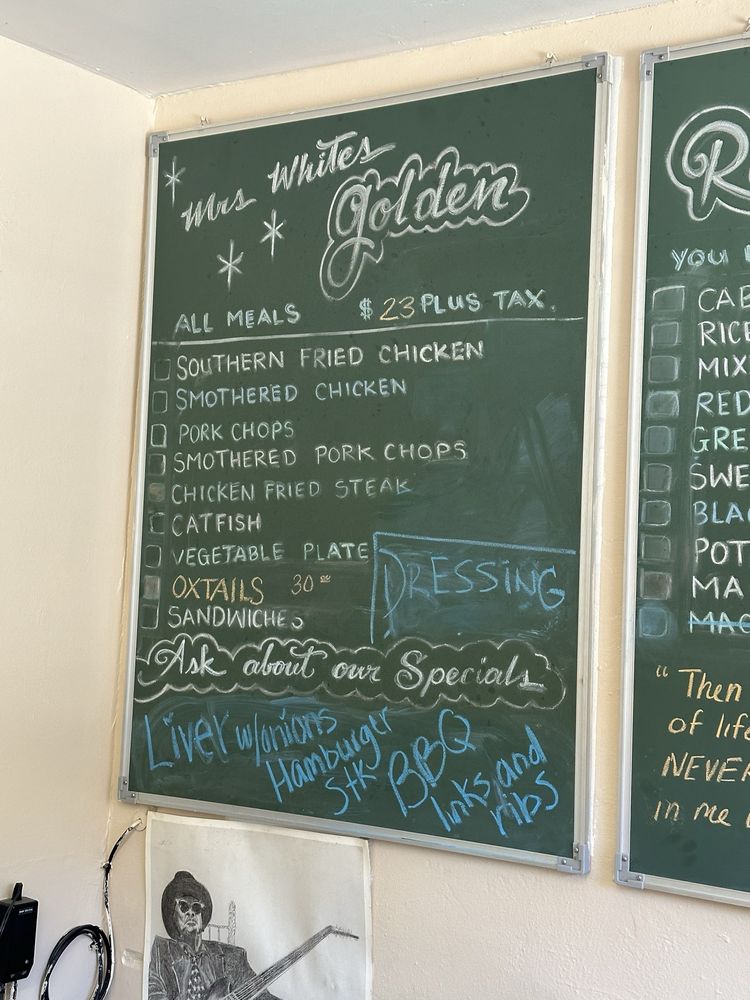 Mrs Whites
golden
ALL MEALS $ 23 PLUS TAX.
SOUTHERN FRIED CHICKEN
SMOTHERED CHICKEN
PORK CHOPS
SMOTHERED PORK CHOPS
CHICKEN FRIED STEAK
CATFISH
VEGETABLE PLATE
OXTAILS 30 00
SANDWICHES
DRESSING
Ask about our Specials
Liver w/onions
Hamburger
Stk
BBQ
links and
ribs
R
YOU
CAB
RICE
MIX
RED
GRE
SWE
BLAC
POT
MA
MAC
" Then
of life
NEVER
in me